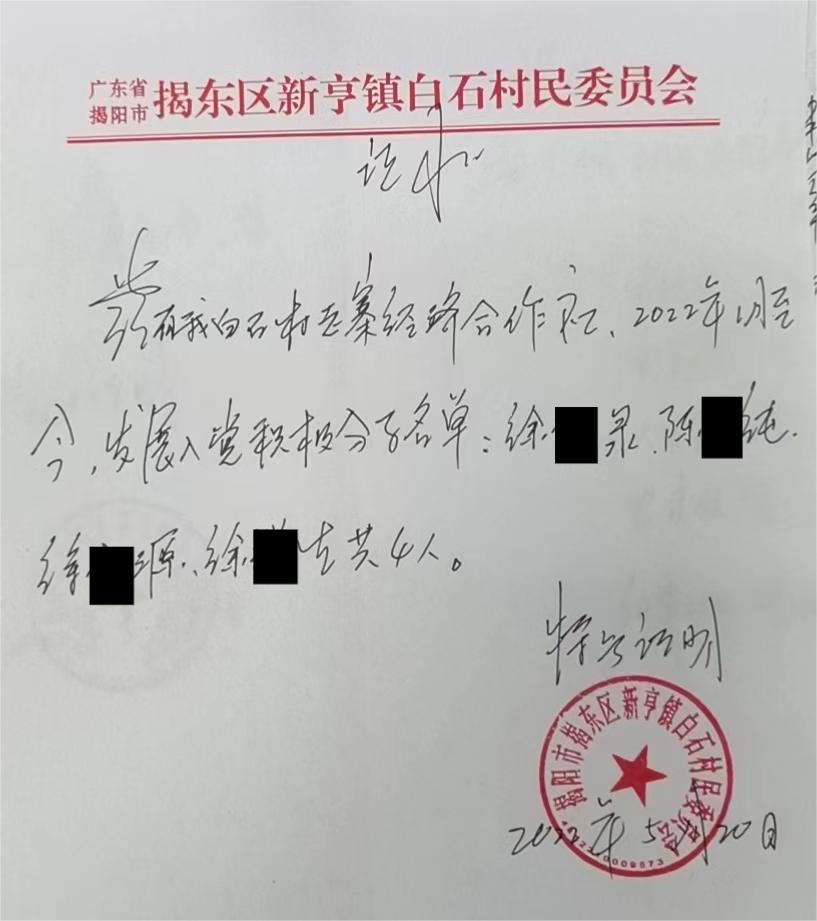 广东省
揭阳市
揭东区新亨镇白石村民委员会
兹有我白石村老寨经济合作社、2022年1月至
今,发展入党积极分子名单:徐 泉、陈 纯、
徐 源、徐 生共4人。
特此证明
揭阳市揭东区新亨镇白石村民委员会
2022年5月20日